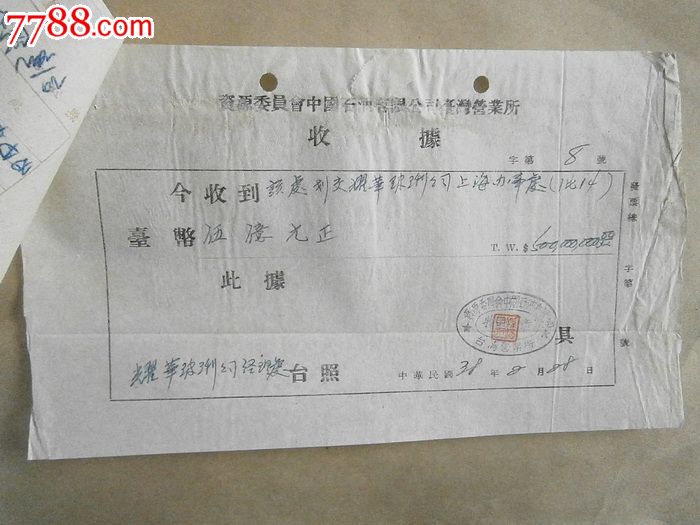 7788.com
資源委員會中國石油有限公司臺灣營業所
收據
字第 8 號
今收到 該處劃交耀華玻璃公司上海办事處(1比14)
臺幣 伍億元正 T.W.$ 500,000,000
此據
台灣營業所
具
耀華玻璃公司經理處 台照 中華民國 38 年 月 日
發票線 字第 號